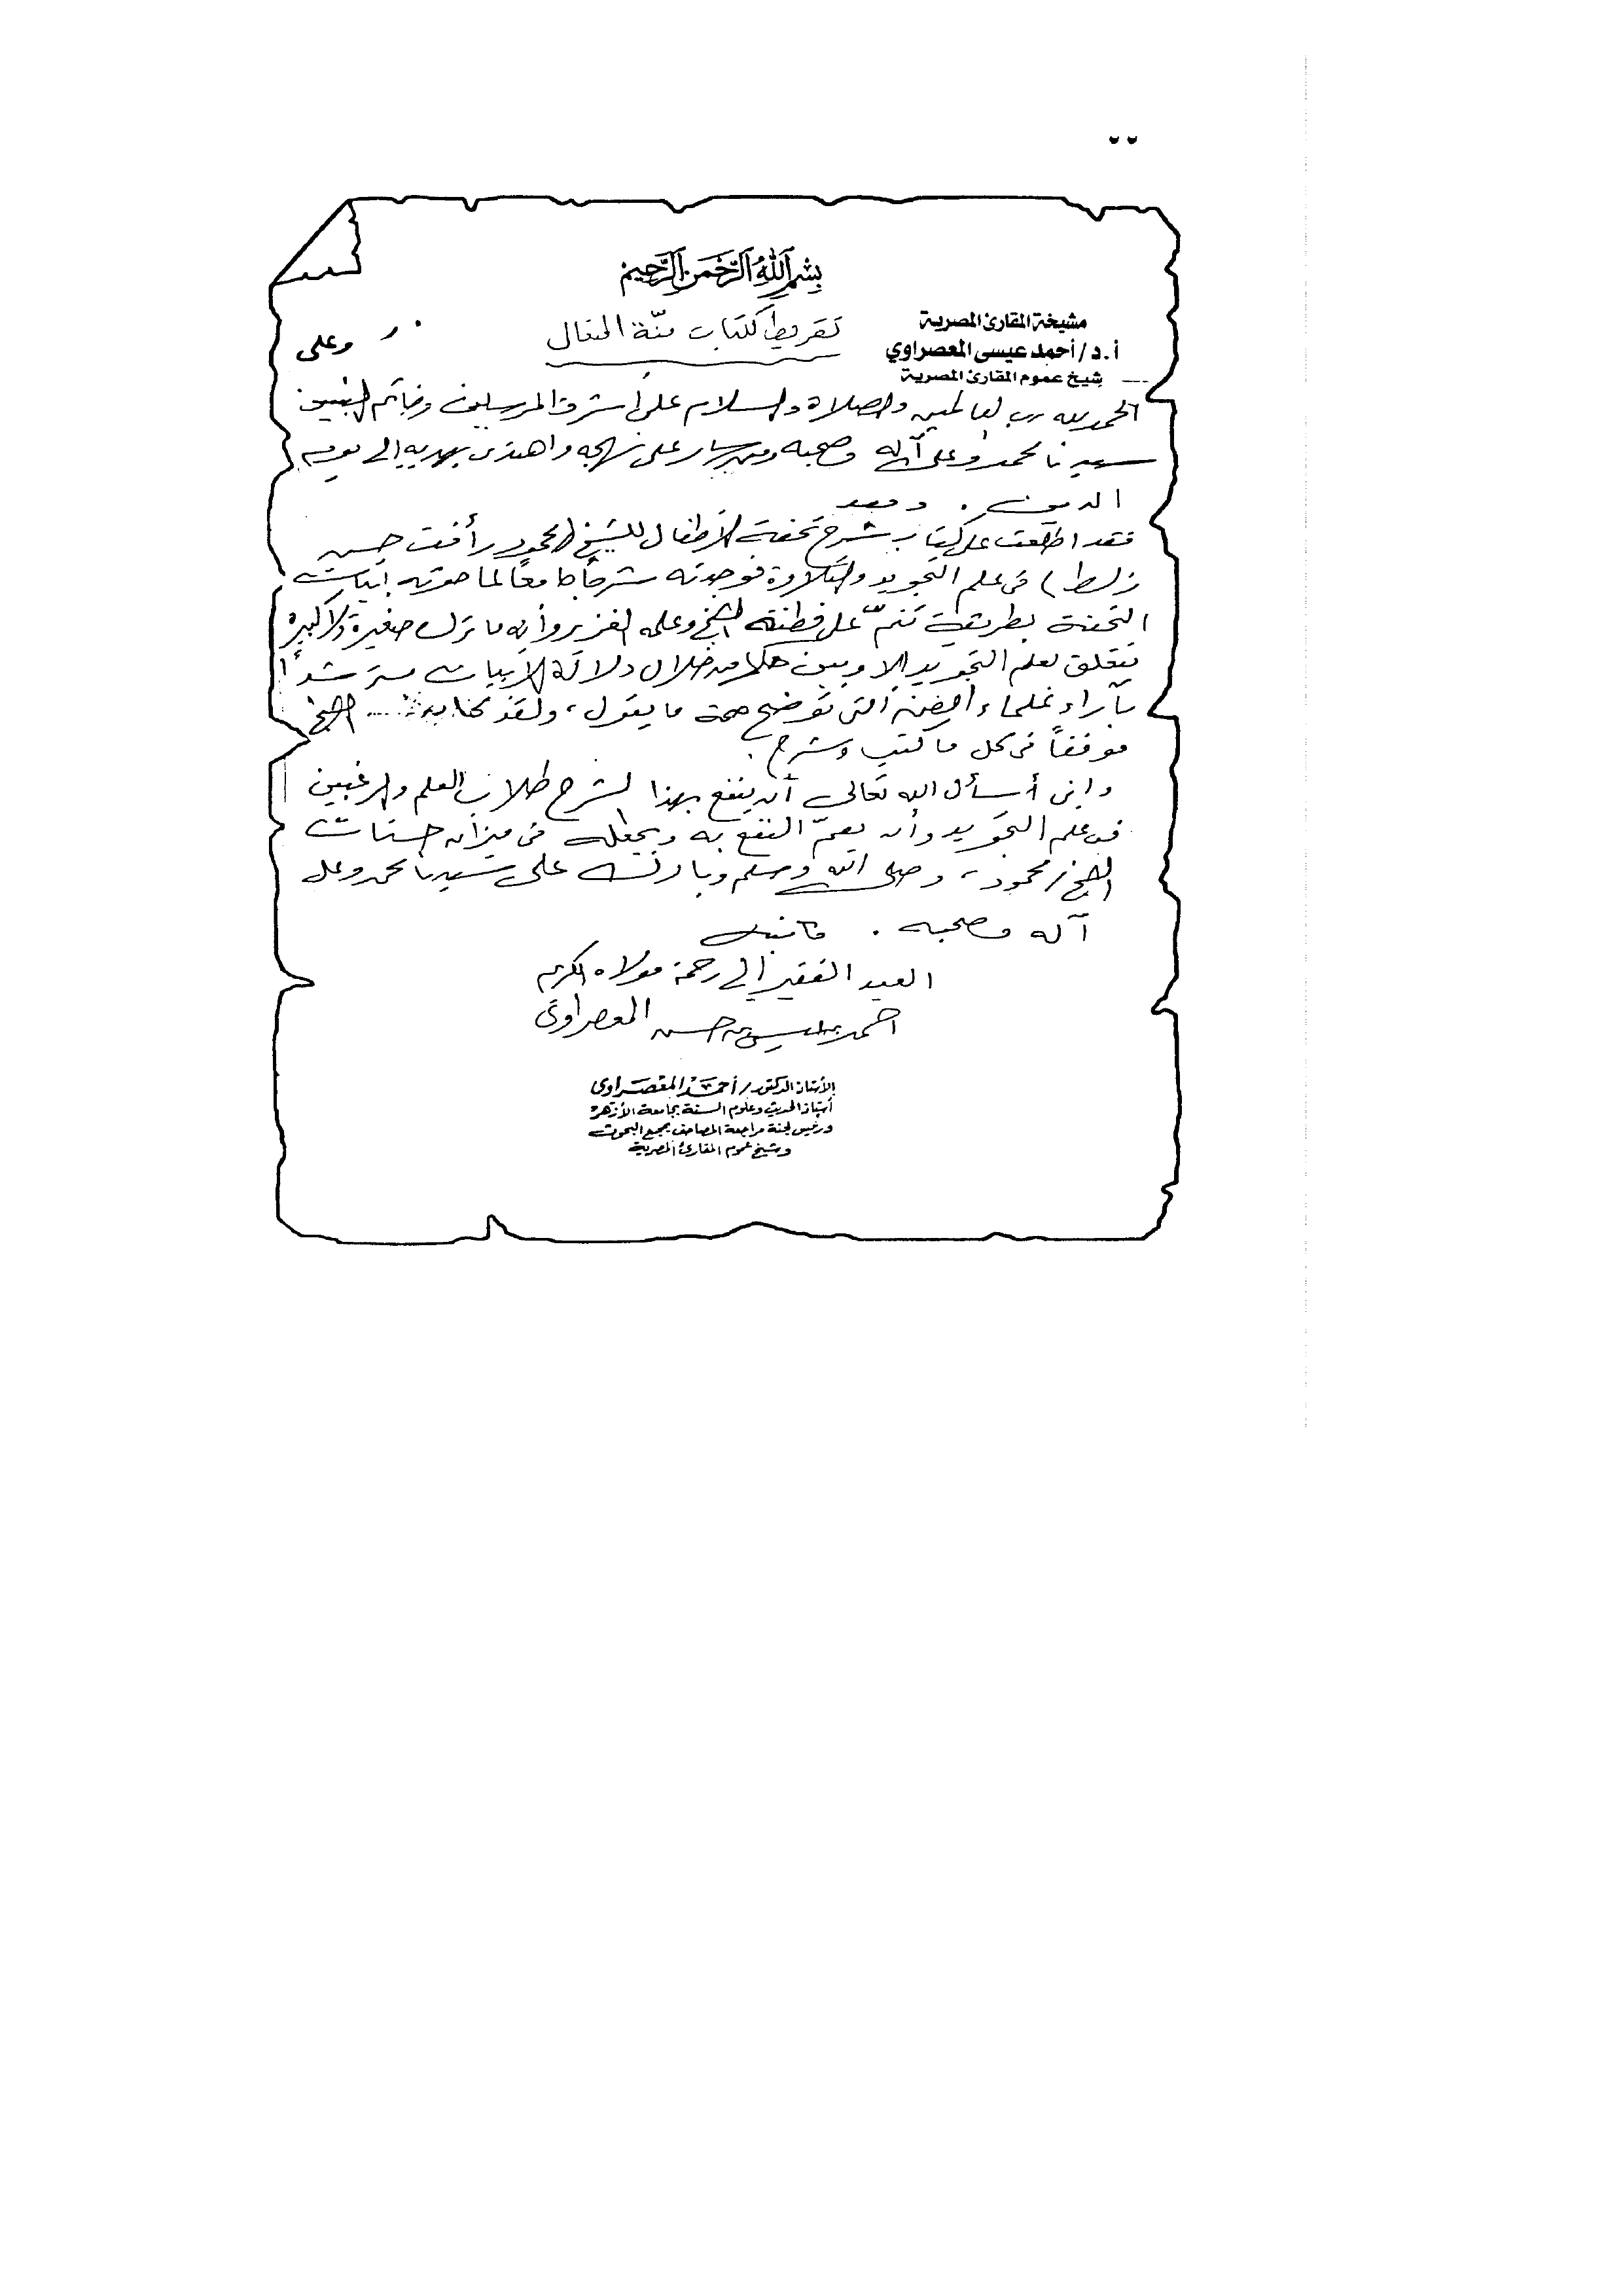 بِسْمِ ٱللَّهِ ٱلرَّحْمَٰنِ ٱلرَّحِيمِ
مشيخة المقارئ المصرية
أ.د/ أحمد عيسى المعصراوي
شيخ عموم المقارئ المصرية
تقريظ كتاب منّة المتعال
وعلى
الحمد لله رب العالمين والصلاة والسلام على أشرف المرسلين وخاتم النبيين
سيدنا محمد وعلى آله وصحبه ومن سار على نهجه واهتدى بهديه إلى يوم
الدين. وبعد
فقد اطلعت على كتاب شرح تحفة الأطفال للشيخ (محمود رأفت حسن
زلط) فى علم التجويد والتلاوة فوجدته شرحاً جامعاً لما حوته أبيات
التحفة بطريقة تنمّ على فطنة الشيخ وعلمه الغزير وأنه ما ترك صغيرة ولا كبيرة
تتعلق بعلم التجويد إلا وبين حكمها من خلال دلالة الأبيات مسترشداً
بآراء علماء الفن التى توضح صحة ما يقول، ولقد كان الشيخ
موفقاً فى كل ما كتب وشرح.
وإنى أسأل الله تعالى أن ينفع بهذا الشرح طلاب العلم والراغبين
فى علم التجويد وأن يعمّ النفع به ويجعله فى ميزان حسنات
الشيخ/ محمود، وصلى الله وسلم وبارك على سيدنا محمد وعلى
آله وصحبه. كاتبه
العبد الفقير إلى رحمة مولاه الكريم
أحمد عيسى حسن المعصراوى
الأستاذ الدكتور/ أحمد المعصراوى
أستاذ الحديث وعلوم السنة بجامعة الأزهر
ورئيس لجنة مراجعة المصاحف بمجمع البحوث
وشيخ عموم المقارئ المصرية